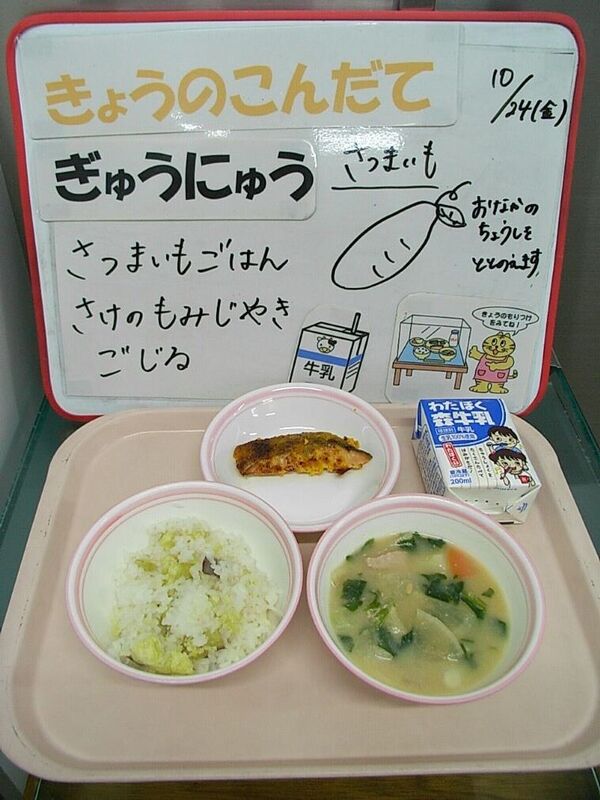 きょうのこんだて
10/24(金)
ぎゅうにゅう
さつまいも
おなかの
ちょうしを
ととのえます
さつまいもごはん
さけのもみじやき
ごじる
牛乳
きょうのもりつけ
をみてね!
わたぼく
森牛乳
種類別 牛乳
生乳100%使用
200ml